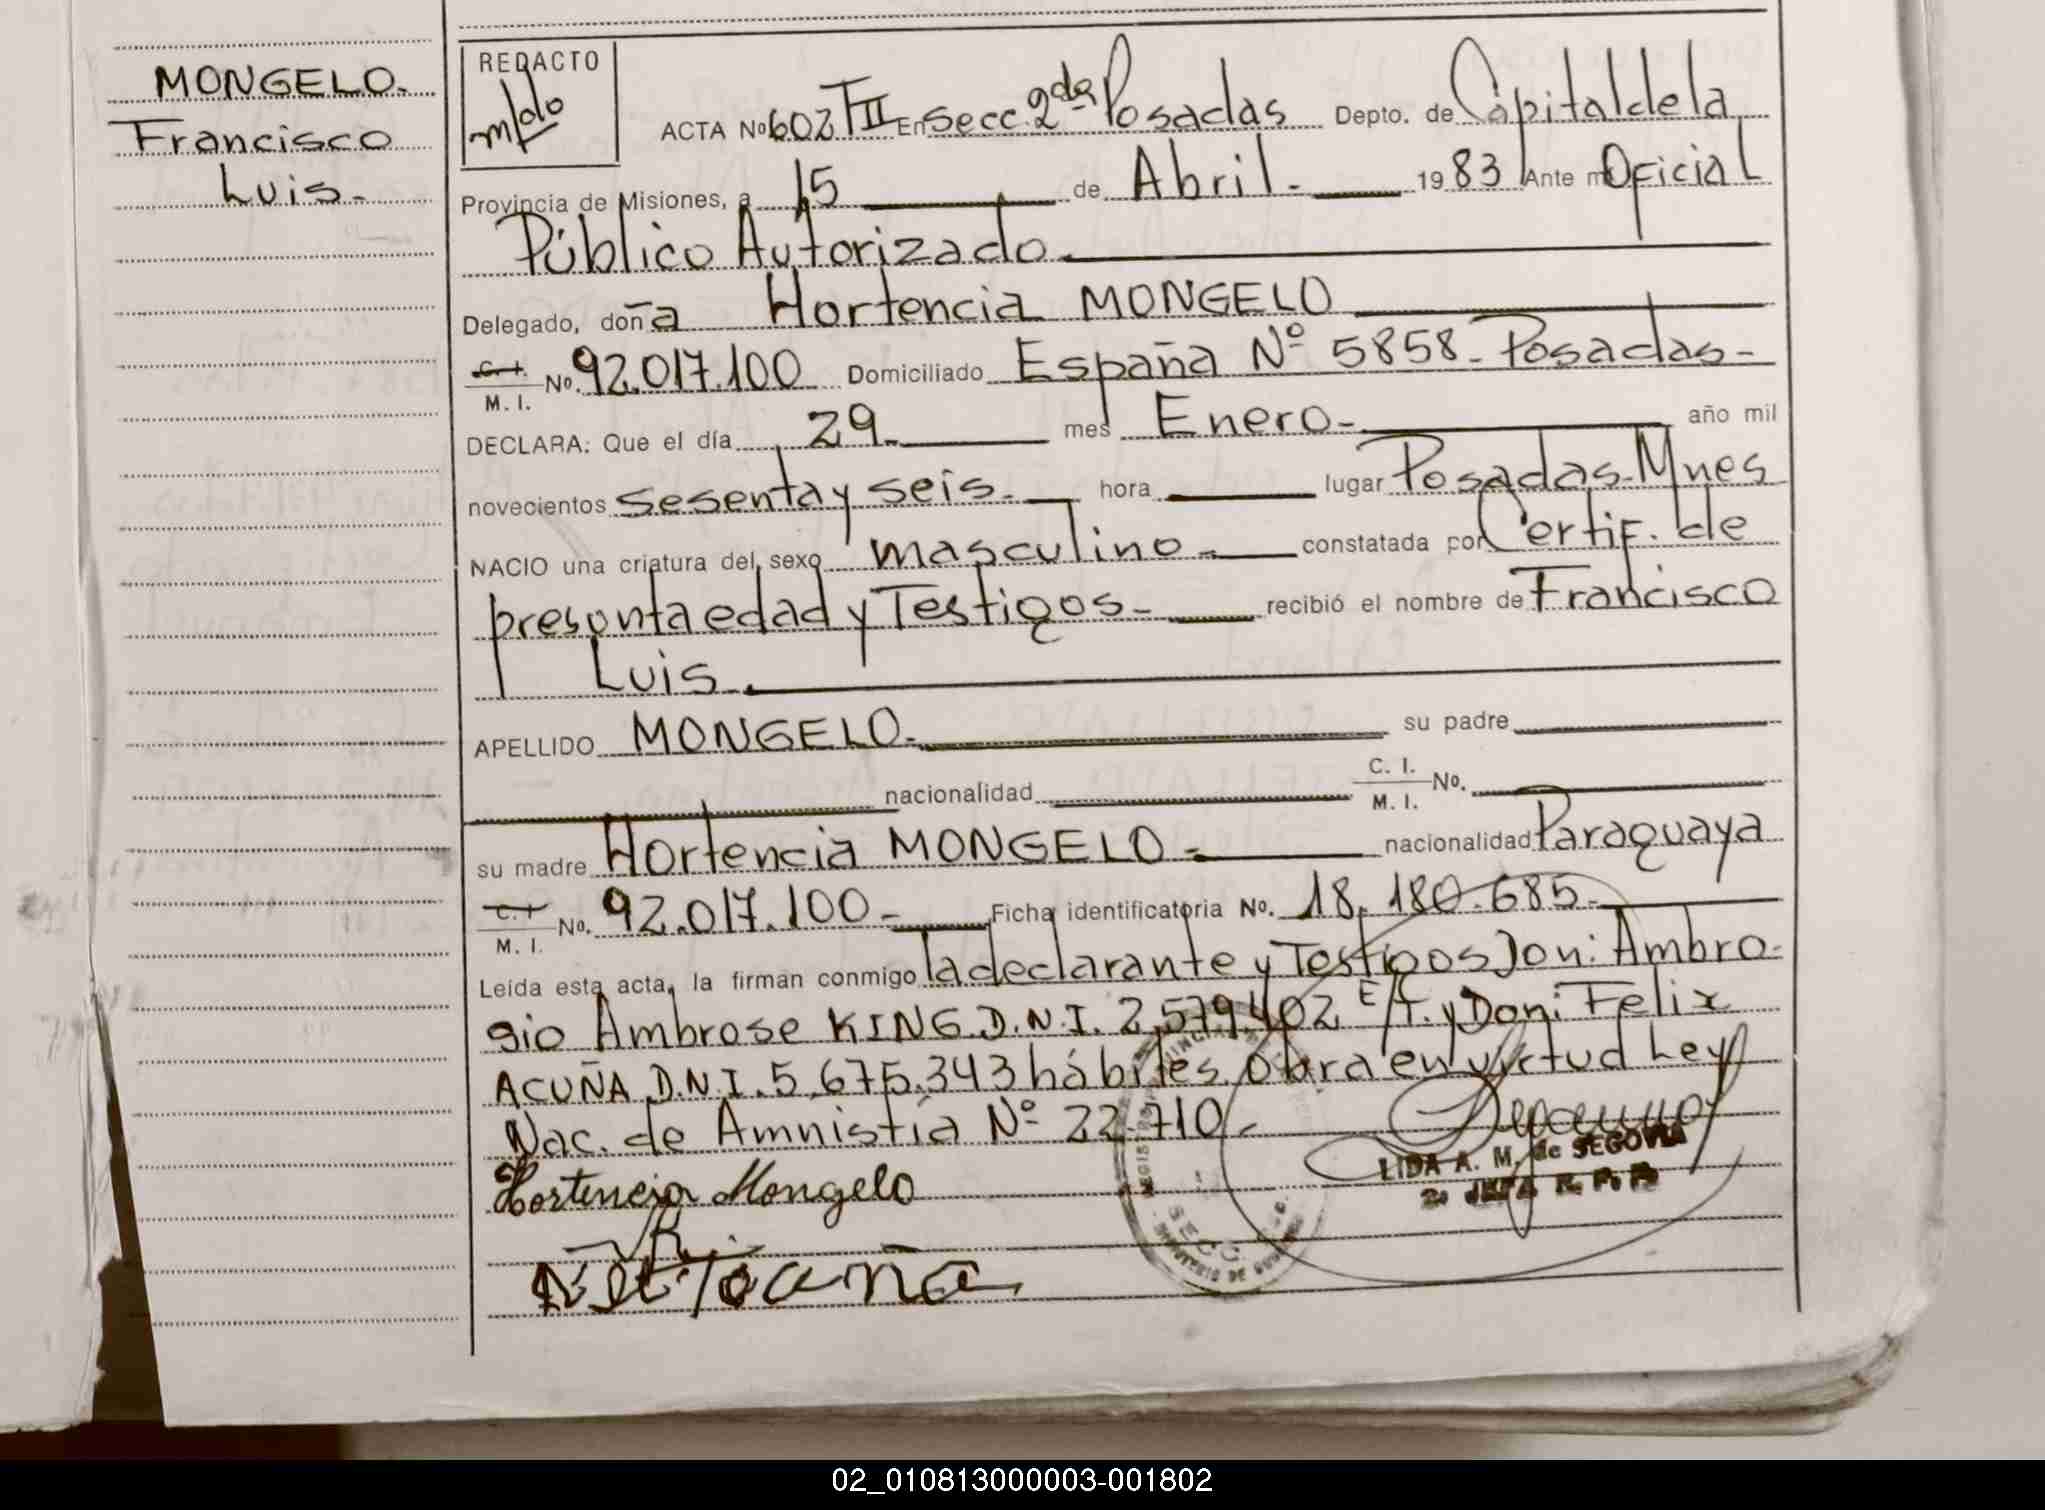 MONGELO.
Francisco
Luis.-
REDACTO
ACTA No 602 TII En Secc. 2da Posadas Depto. de Capital de la
Provincia de Misiones, a 15 de Abril.- 1983 Ante mi Oficial
Público Autorizado
Delegado, doña Hortencia MONGELO
C. I. M. I. No. 92.017.100 Domiciliado España Nº 5858-Posadas-
DECLARA: Que el día 29 mes Enero- año mil
novecientos sesenta y seis.- hora lugar Posadas-Mnes
NACIO una criatura del sexo masculino- constatada por Certif. de
presunta edad y Testigos- recibió el nombre de Francisco
Luis.
APELLIDO MONGELO.- su padre
nacionalidad C. I. M. I. No.
su madre Hortencia MONGELO- nacionalidad Paraguaya
C. I. M. I. No. 92.017.100- Ficha identificatoria No. 18.180.685-
Leída esta acta, la firman conmigo la declarante y Testigos Don: Ambro-
sio Ambrose KING D.N.I. 2.579.402 E/T. y Don: Felix
ACUÑA D.N.I. 5.675.343 hábiles. Obra en virtud Ley
Nac. de Amnistía Nº 22.710.-
LIDA A. M. de SEGOVIA
2a JEFA R. P. P.
Hortencia Mongelo
02_010813000003-001802